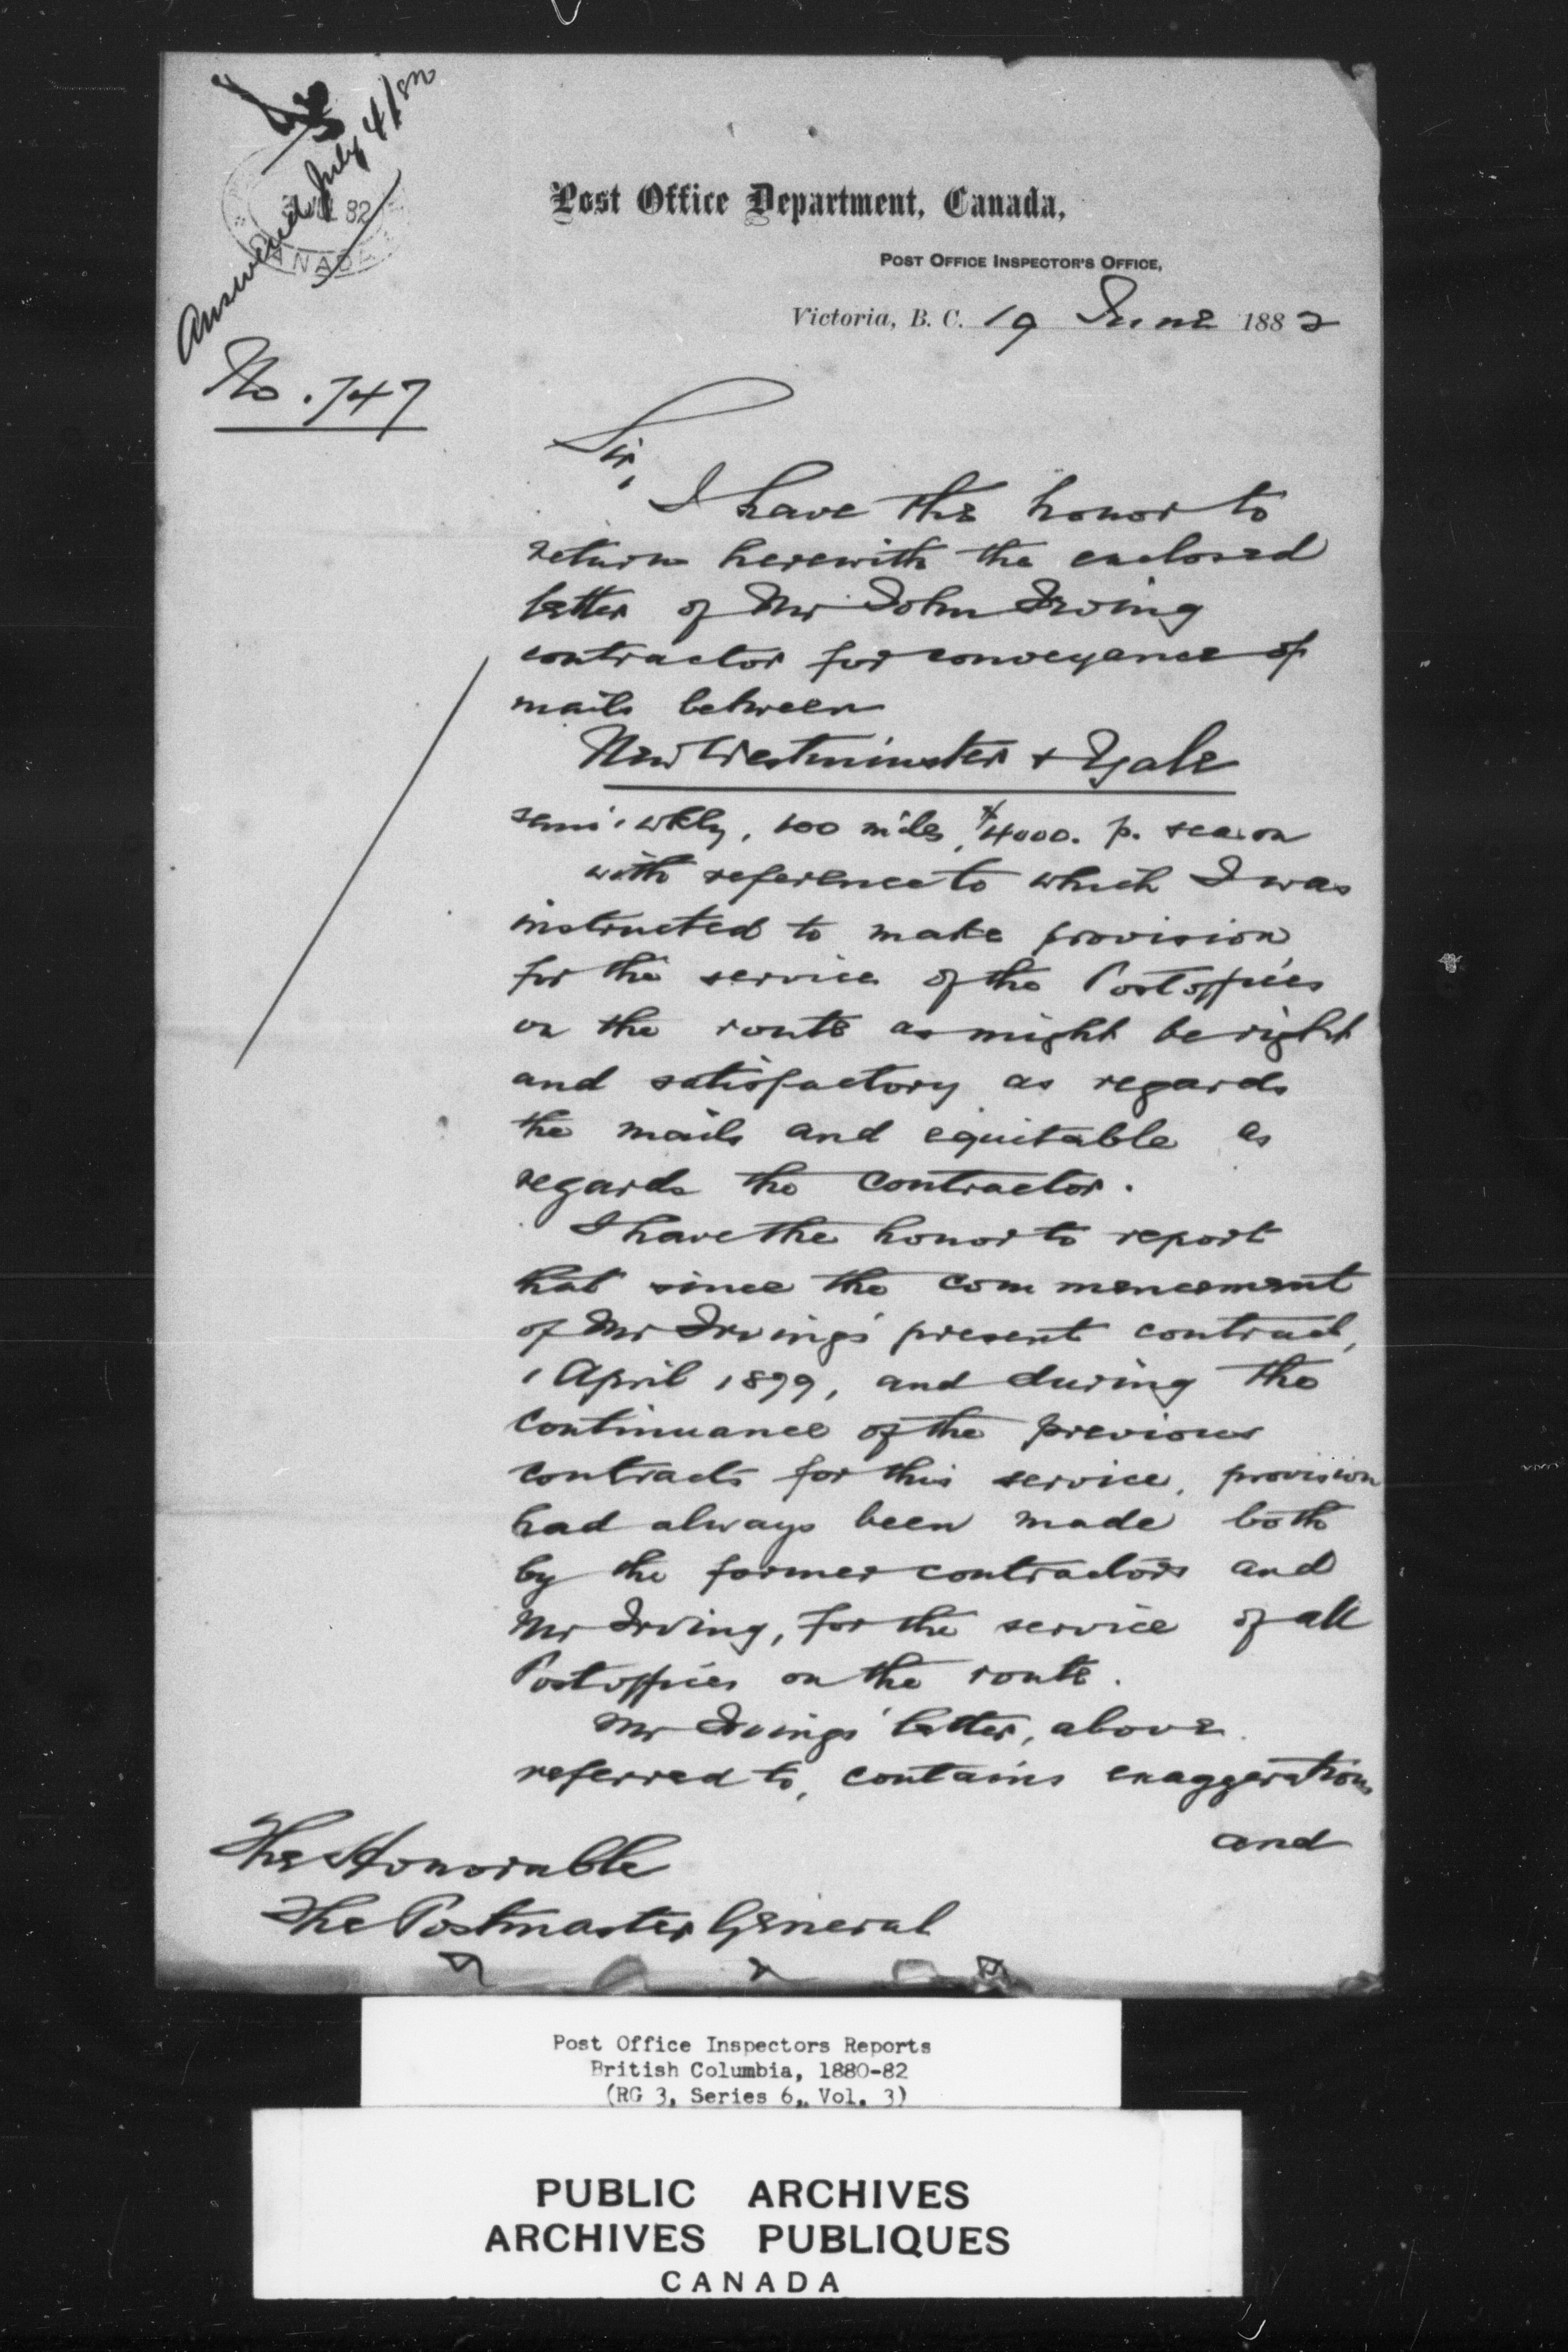 Answered July 4/82
82
CANADA
No. 747
Post Office Department, Canada,
POST OFFICE INSPECTOR'S OFFICE,
Victoria, B. C. 19 June 1882
Sir,
I have the honor to
return herewith the enclosed
letter of Mr John Irving
contractor for conveyance of
mails between
New Westminster & Yale
semi-wkly, 100 miles, $4000. p. season
with reference to which I was
instructed to make provision
for the service of the Postoffices
on the route as might be right
and satisfactory as regards
the mails and equitable as
regards the contractor.
I have the honor to report
that since the commencement
of Mr Irving's present contract,
1 April 1879, and during the
continuance of the previous
contracts for this service, provision
had always been made both
by the former contractors and
Mr Irving, for the service of all
Postoffices on the route.
Mr Irvings' letter, above
referred to, contains exaggerations
and
The Honorable
The Postmaster General
Post Office Inspectors Reports
British Columbia, 1880-82
(RG 3, Series 6, Vol. 3)
PUBLIC ARCHIVES
ARCHIVES PUBLIQUES
CANADA